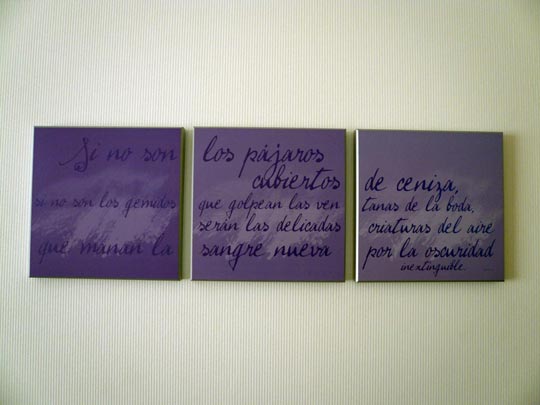 Si no son los pájaros
cubiertos de ceniza,
si no son los gemidos que golpean las ven tanas de la boda,
serán las delicadas criaturas del aire
que manan la sangre nueva por la oscuridad
inextinguible.